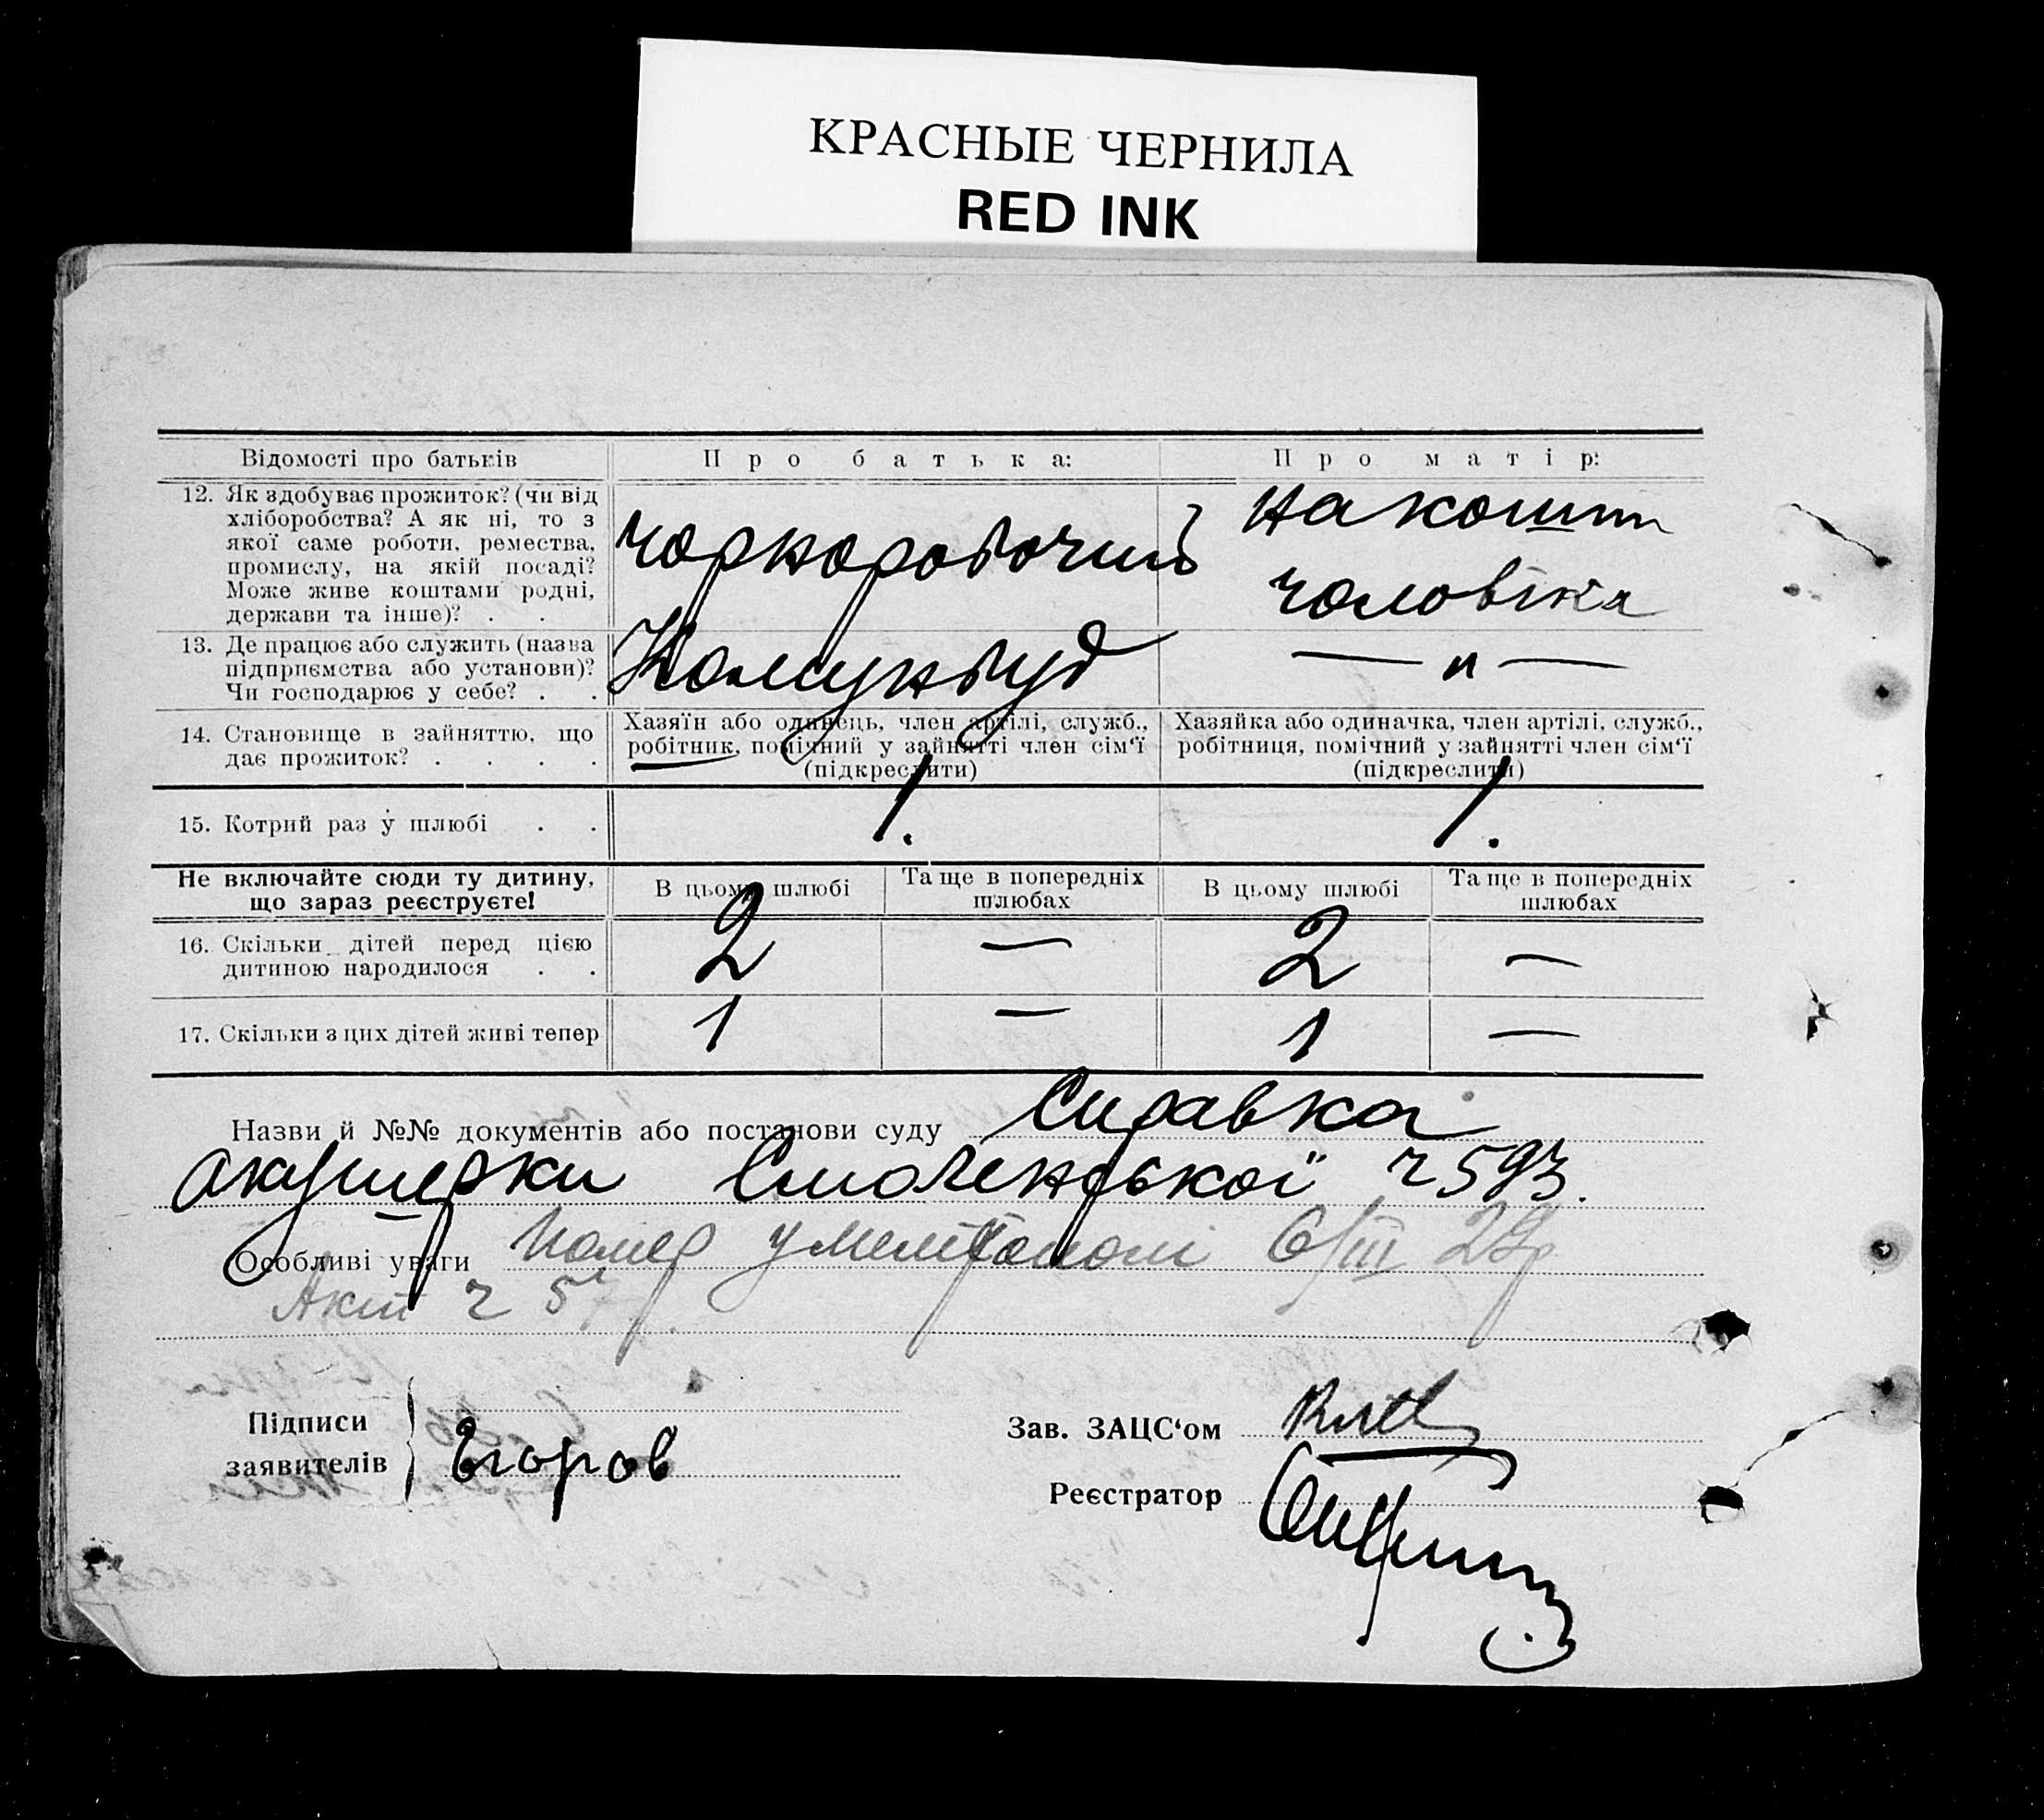 КРАСНЫЕ ЧЕРНИЛА
RED INK
Відомості про батьків
Про батька:
Про матір:
12. Як здобуває прожиток? (чи від
хліборобства? А як ні, то з
якої саме роботи, ремества,
промислу, на якій посаді?
Може живе коштами родні,
держави та інше)? . .
чорноробочий
на кошти
чоловіка
13. Де працює або служить (назва
підприємства або установи)?
Чи господарює у себе? . .
Комунбуд
— „ —
14. Становище в зайняттю, що
дає прожиток? . . . .
Хазяїн або одинець, член артілі, служб.,
робітник, помічний у зайнятті член сім‘ї
(підкреслити)
Хазяйка або одиначка, член артілі, служб.,
робітниця, помічний у зайнятті член сім‘ї
(підкреслити)
15. Котрий раз у шлюбі . .
1.
1.
Не включайте сюди ту дитину,
що зараз реєструєте!
В цьому шлюбі
Та ще в попередніх
шлюбах
В цьому шлюбі
Та ще в попередніх
шлюбах
16. Скільки дітей перед цією
дитиною народилося . .
2
—
2
—
17. Скільки з цих дітей живі тепер
1
—
1
—
Назви й №№ документів або постанови суду Справка
акушерки Смоленської ч 593.
Особливі уваги Помер у Мелітополі 6/III 29р
Акт ч
Підписи
заявителів
Егоров
Зав. ЗАЦС‘ом
Реєстратор